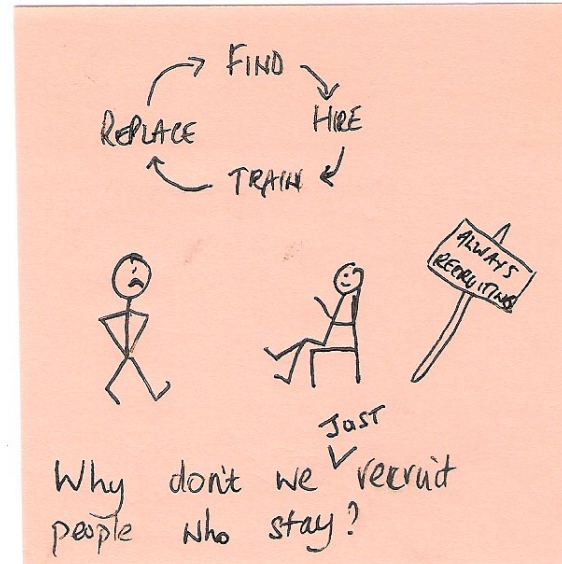 FIND
HIRE
TRAIN
REPLACE
ALWAYS
RECRUITING
Just
Why don't we recruit
people who stay?